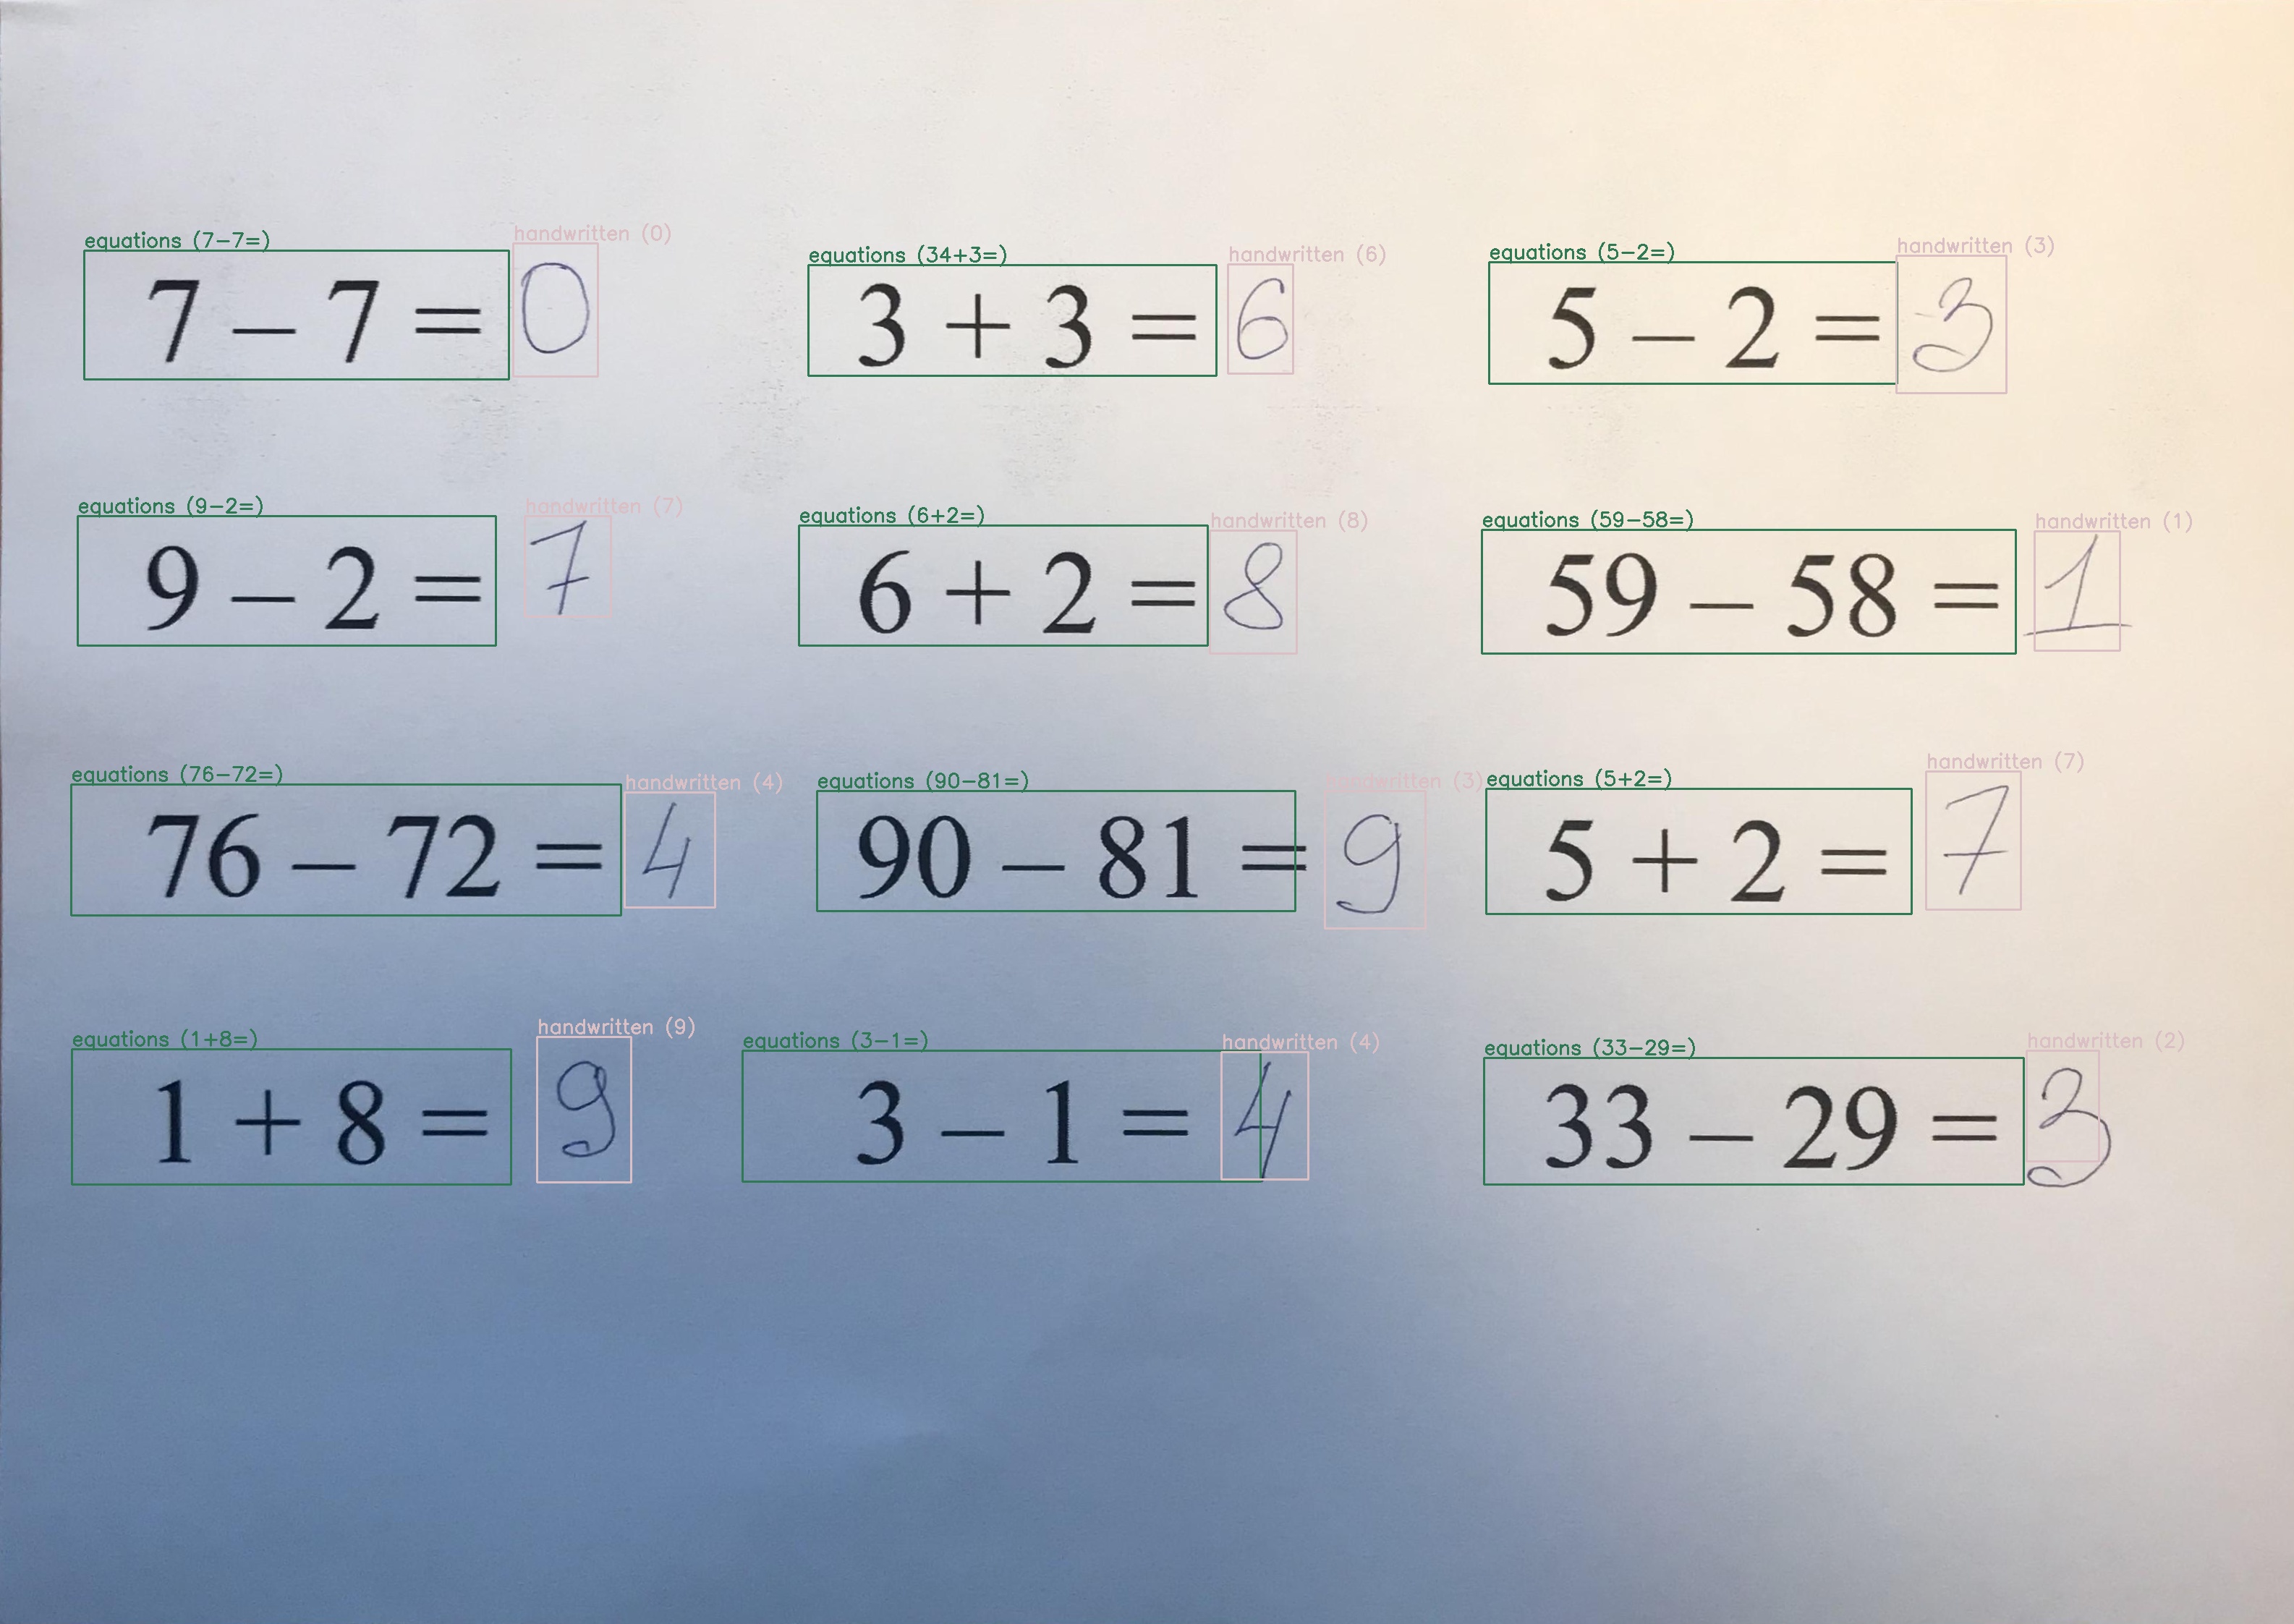 equations (7-7=) handwritten (0) equations (34+3=) handwritten (6) equations (5-2=) handwritten (3)
7 – 7 = 0 3 + 3 = 6 5 – 2 = 3
equations (9-2=) handwritten (7) equations (6+2=) handwritten (8) equations (59-58=) handwritten (1)
9 – 2 = 7 6 + 2 = 8 59 – 58 = 1
equations (76-72=) handwritten (4) equations (90-81=) handwritten (3) equations (5+2=) handwritten (7)
76 – 72 = 4 90 – 81 = 9 5 + 2 = 7
equations (1+8=) handwritten (9) equations (3-1=) handwritten (4) equations (33-29=) handwritten (2)
1 + 8 = 9 3 – 1 = 4 33 – 29 = 3